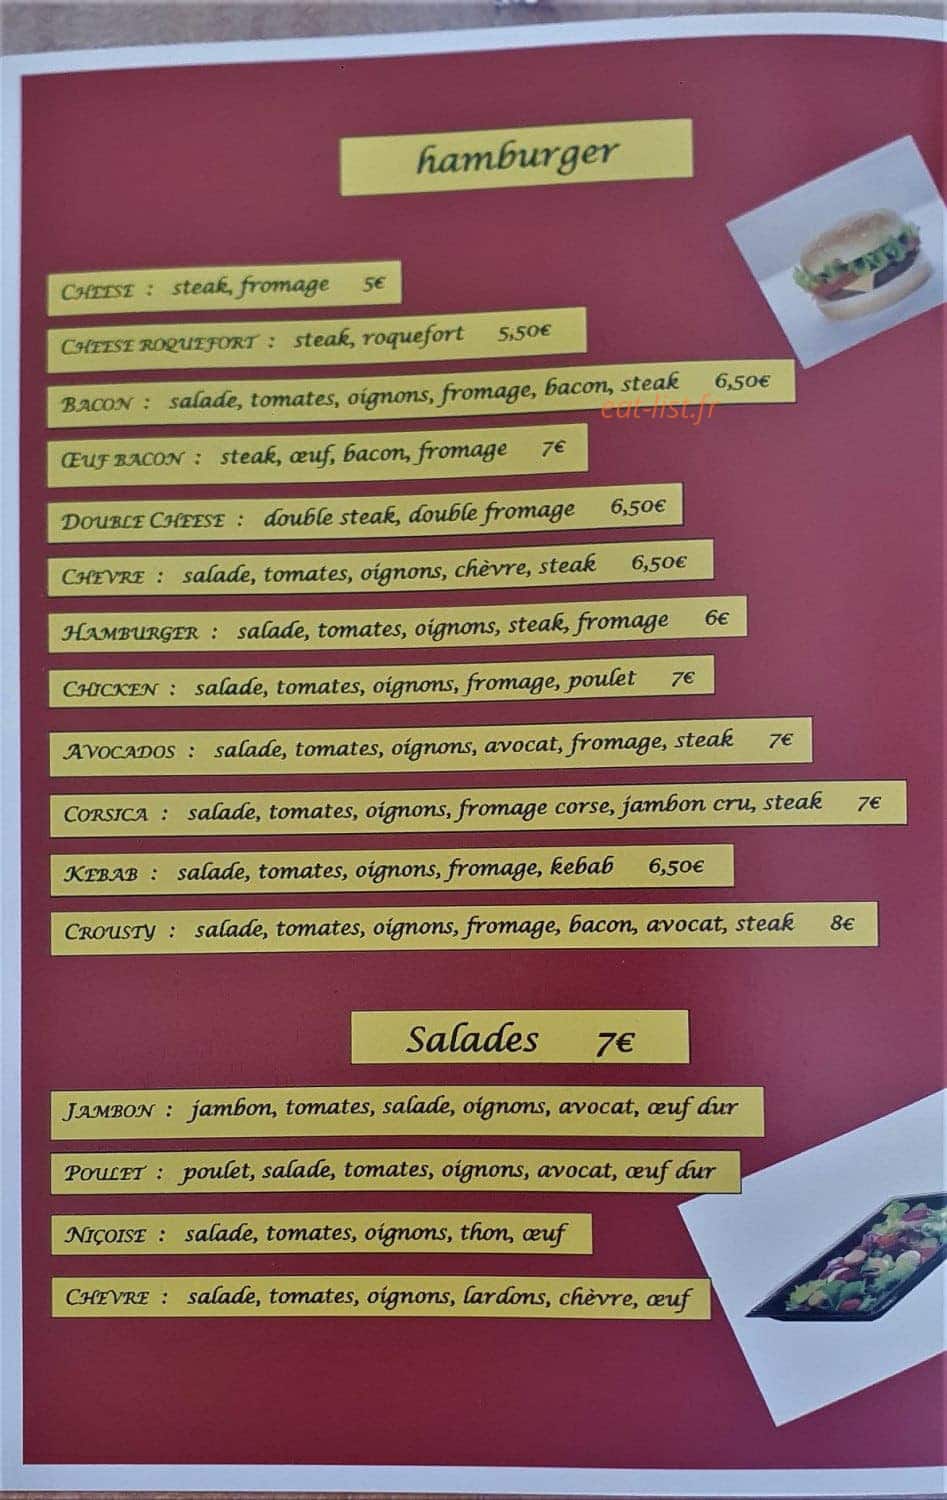 hamburger
CHEESE : steak, fromage 5€
CHEESE ROQUEFORT : steak, roquefort 5,50€
BACON : salade, tomates, oignons, fromage, bacon, steak 6,50€
eat-list.fr
ŒUF BACON : steak, œuf, bacon, fromage 7€
DOUBLE CHEESE : double steak, double fromage 6,50€
CHEVRE : salade, tomates, oignons, chèvre, steak 6,50€
HAMBURGER : salade, tomates, oignons, steak, fromage 6€
CHICKEN : salade, tomates, oignons, fromage, poulet 7€
AVOCADOS : salade, tomates, oignons, avocat, fromage, steak 7€
CORSICA : salade, tomates, oignons, fromage corse, jambon cru, steak 7€
KEBAB : salade, tomates, oignons, fromage, kebab 6,50€
CROUSTY : salade, tomates, oignons, fromage, bacon, avocat, steak 8€
Salades 7€
JAMBON : jambon, tomates, salade, oignons, avocat, œuf dur
POULET : poulet, salade, tomates, oignons, avocat, œuf dur
NIÇOISE : salade, tomates, oignons, thon, œuf
CHEVRE : salade, tomates, oignons, lardons, chèvre, œuf